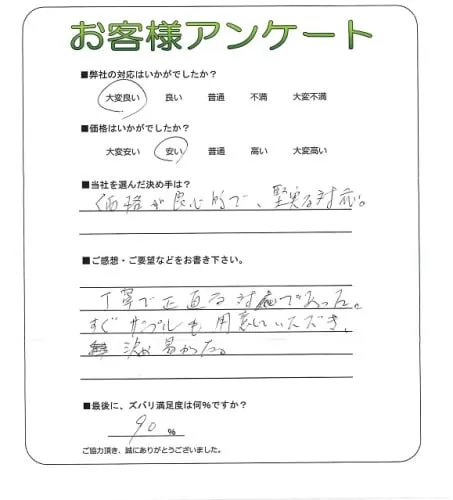 お客様アンケート
■弊社の対応はいかがでしたか？
大変良い 良い 普通 不満 大変不満
■価格はいかがでしたか？
大変安い 安い 普通 高い 大変高い
■当社を選んだ決め手は？
価格が良心的で、堅実な対応。
■ご感想・ご要望などをお書き下さい。
丁寧で正直な対応であった。
すぐサンプルも用意していただき、
決め易かった。
■最後に、ズバリ満足度は何％ですか？
90 ％
ご協力頂き、誠にありがとうございました。